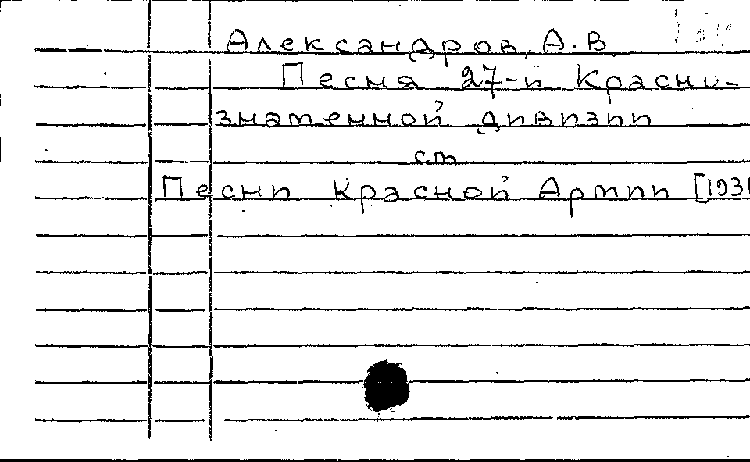 Александров, А.В.
Песня 27-й Красно-
знаменной дивизии
см
Песни Красной Армии [1931